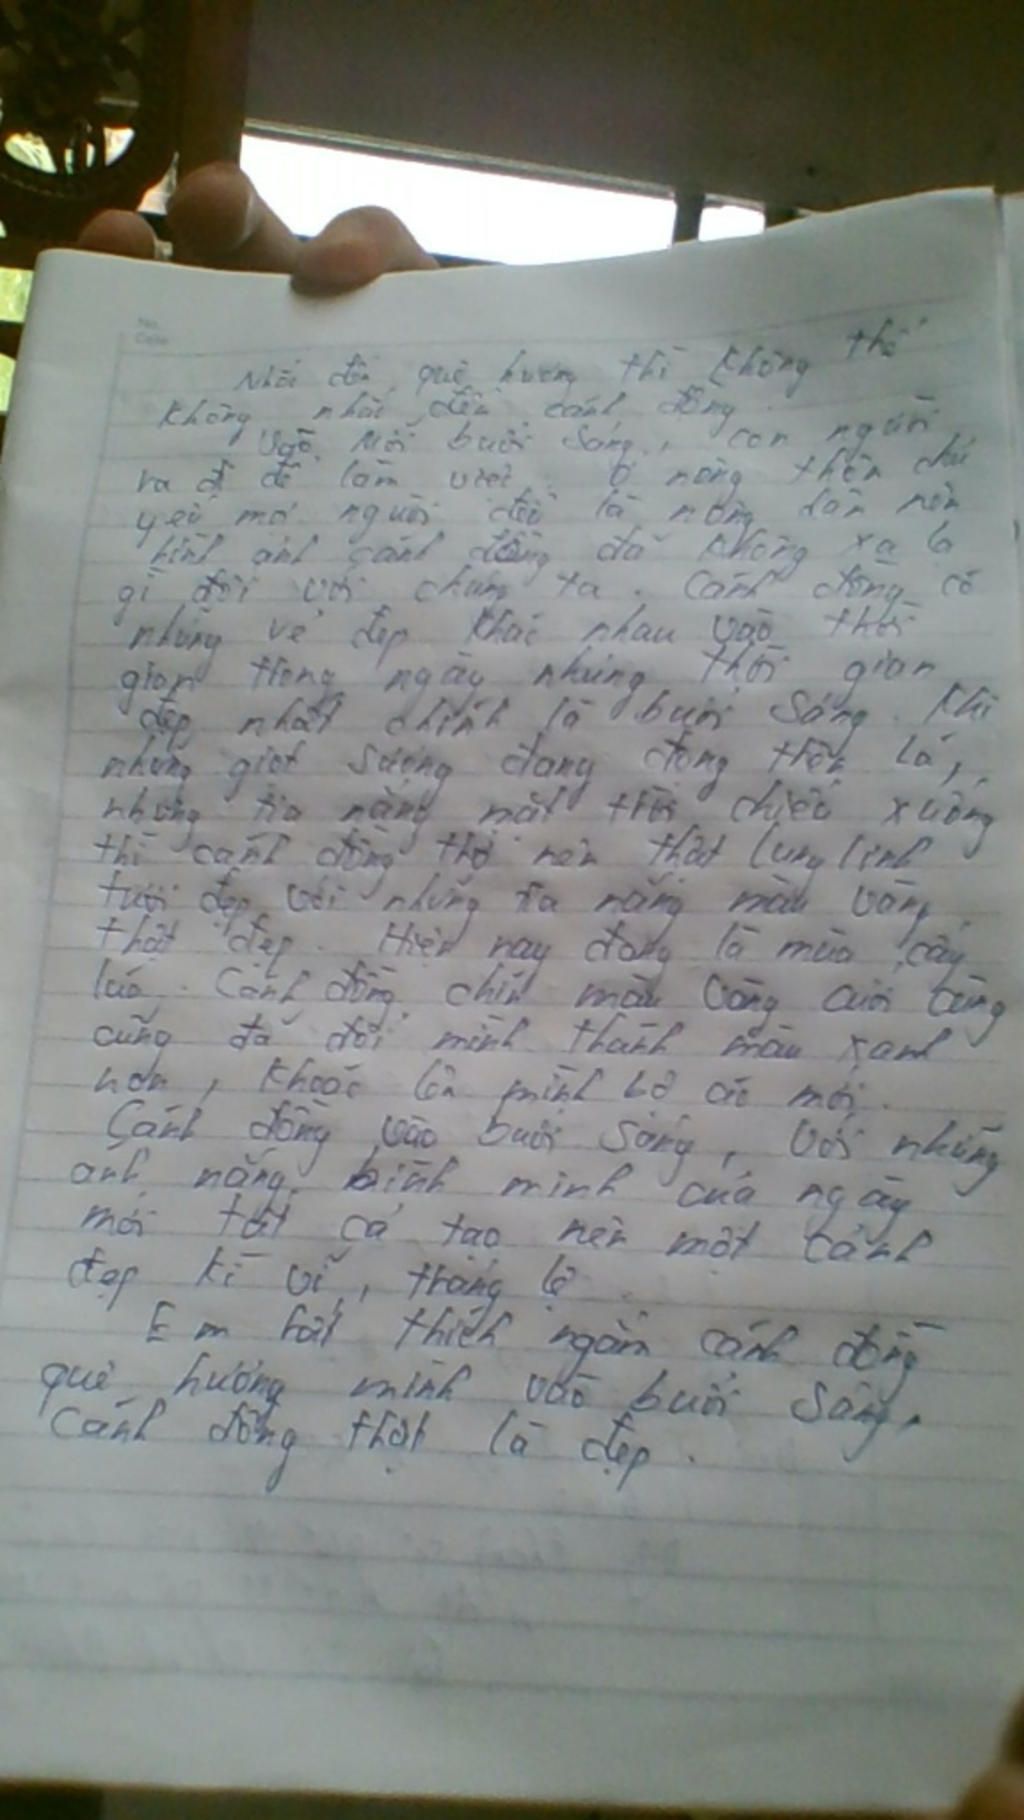 Nhắc đến quê hương thì không thể
không nhắc đến cánh đồng.
Vào mỗi buổi sáng, con người
ra đi để làm việc. Ở nông thôn chủ
yếu mọi người đều là nông dân nên
hình ảnh cánh đồng đã không xa lạ
gì đối với chúng ta. Cánh đồng có
những vẻ đẹp khác nhau vào thời
gian trong ngày nhưng thời gian
đẹp nhất chính là buổi sáng. Khi
những giọt sương đang đọng trên lá,
những tia nắng mặt trời chiếu xuống
thì cánh đồng trở nên thật lung linh
tươi đẹp với những tia nắng màu vàng
thật đẹp. Hiện nay đang là mùa cấy
lúa. Cánh đồng chín màu vàng cuối cùng
cũng đã đổi mình thành màu xanh
non, khoác lên mình bộ áo mới.
Cánh đồng vào buổi sáng, với những
ánh nắng bình minh của ngày
mới tất cả tạo nên một cảnh
đẹp kì vĩ, tráng lệ.
Em rất thích ngắm cánh đồng
quê hương mình vào buổi sáng.
Cánh đồng thật là đẹp.